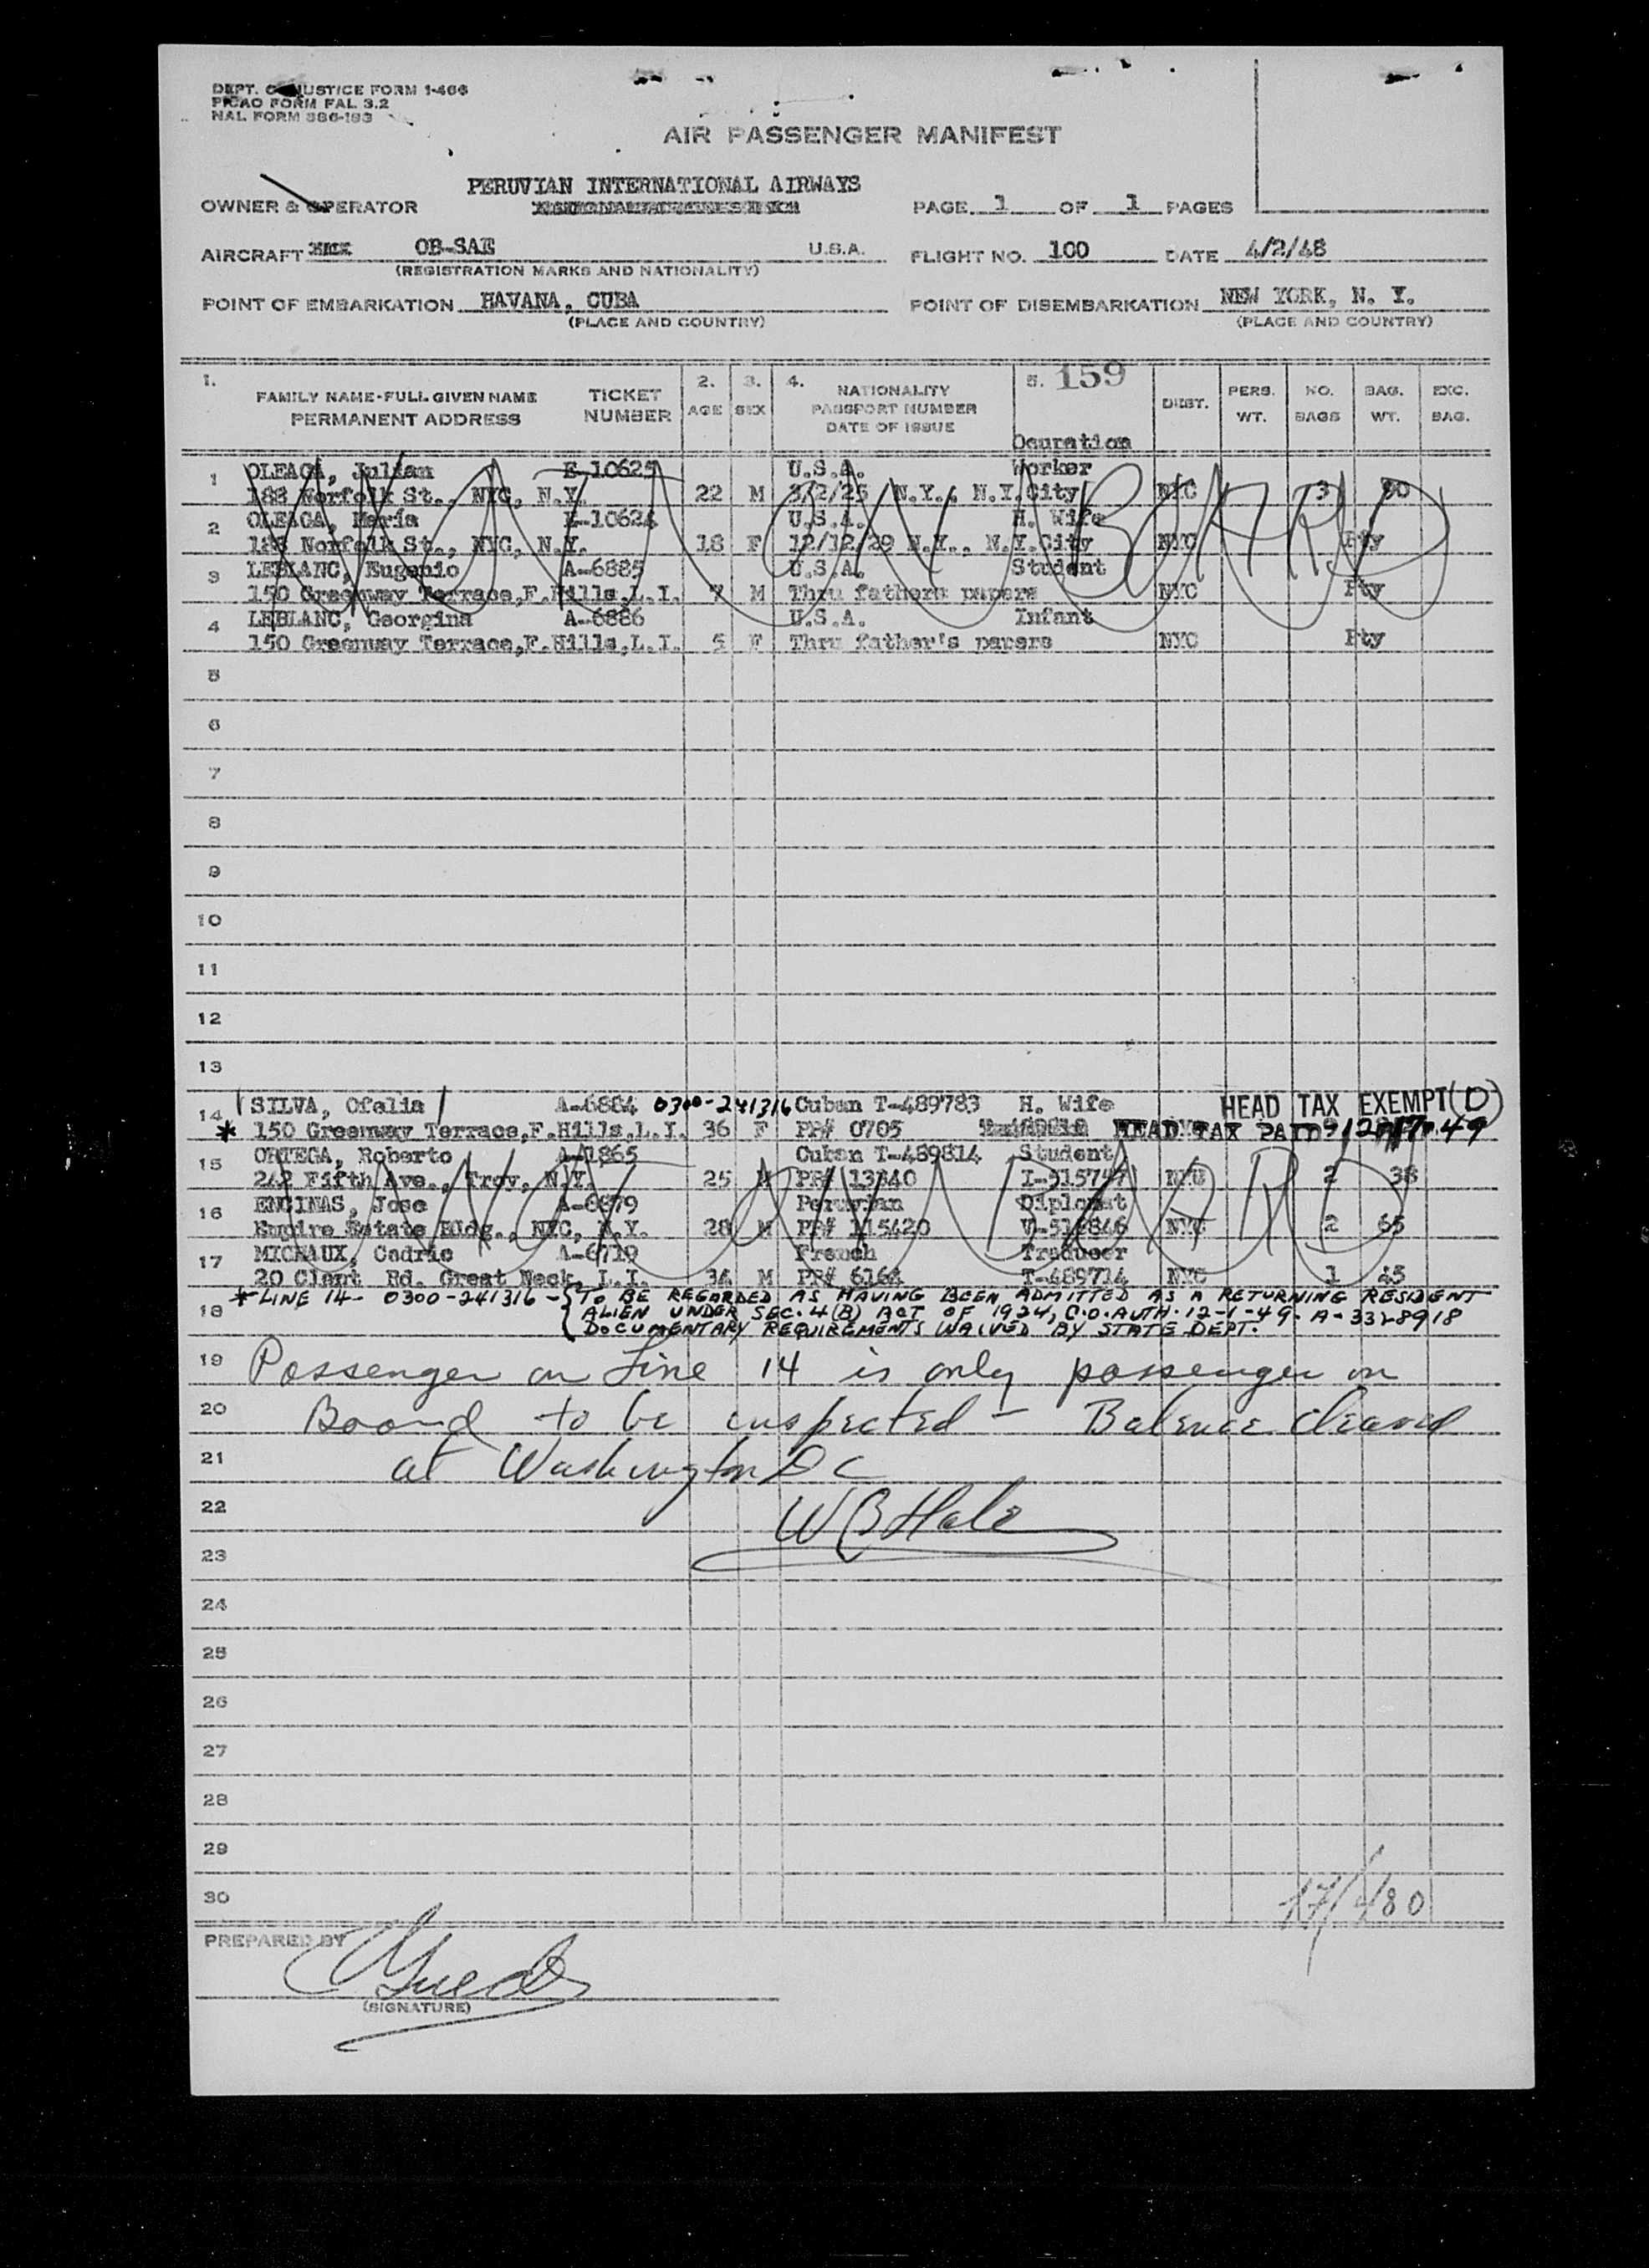 DEPT. OF JUSTICE FORM I-466
PICAO FORM FAL 3.2
NAL FORM 386-193
AIR PASSENGER MANIFEST
PERUVIAN INTERNATIONAL AIRWAYS
OWNER & OPERATOR PAGE 1 OF 1 PAGES
AIRCRAFT OB-SAE U.S.A. FLIGHT NO. 100 DATE 4/2/48
(REGISTRATION MARKS AND NATIONALITY)
POINT OF EMBARKATION HAVANA, CUBA POINT OF DISEMBARKATION NEW YORK, N. Y.
(PLACE AND COUNTRY) (PLACE AND COUNTRY)
1. 2. 3. 4. 5. 159
FAMILY NAME-FULL GIVEN NAME TICKET NATIONALITY PERS. NO. BAG. EXC.
PERMANENT ADDRESS NUMBER AGE SEX PASSPORT NUMBER DEST. WT. BAGS WT. BAG.
DATE OF ISSUE
Ocuration
1 OLEAGA, Julian E-10625 U.S.A. Worker
188 Norfolk St., NYC, N.Y. 22 M 3/2/26 N.Y., N.Y.City NYC 3 90
2 OLEAGA, Maria E-10624 U.S.A. H. Wife
188 Norfolk St., NYC, N.Y. 18 F 12/12/29 N.Y., N.Y.City NYC Pty
NOT ON BOARD
3 LEBLANC, Eugenio A-6885 U.S.A. Student
150 Greenway Terrace,F.Hills,L.I. 7 M Thru fathers papers NYC Pty
4 LEBLANC, Georgina A-6886 U.S.A. Infant
150 Greenway Terrace,F.Hills,L.I. 5 F Thru father's papers NYC Pty
5
6
7
8
9
10
11
12
13
14 SILVA, Ofelia A-6884 0300-241316 Cuban T-489783 H. Wife HEAD TAX EXEMPT (D)
* 150 Greenway Terrace,F.Hills,L.I. 36 F PP# 0705 HEAD TAX PAID
15 ORTEGA, Roberto A-1865 Cuban T-489814 Student
242 Fifth Ave., Troy, N.Y. 25 M PP# 13840 I-515757 NYC 2 38
16 ENCINAS, Jose A-6879 Peruvian Diplomat
Empire Estate Bldg., NYC, N.Y. 28 M PP# 115420 V-514846 NYC 2 65
NOT ON BOARD
17 MICHAUX, Cedric A-6719 French Traducer
20 Clent Rd. Great Neck, L.I. 34 M PP# 6164 T-489714 NYC 1 25
* LINE 14- 0300-241316 - { TO BE REGARDED AS HAVING BEEN ADMITTED AS A RETURNING RESIDENT
18 ALIEN UNDER SEC. 4(B) ACT OF 1924, C.O. AUTH. 12-1-49. A-3328918
DOCUMENTARY REQUIREMENTS WAIVED BY STATE DEPT.
19 Passenger on Line 14 is only passenger on
20 Board to be inspected - Balance cleared
21 at Washington DC
22 W B Hale
23
24
25
26
27
28
29
30
PREPARED BY
(SIGNATURE)